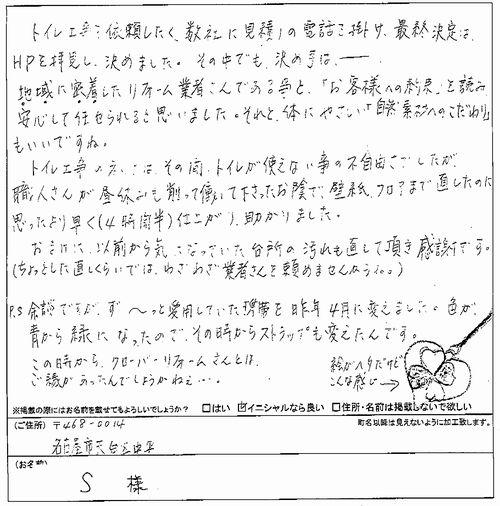 トイレ工事を依頼したく、数社に見積りの電話を掛け、最終決定は、
HPを拝見し、決めました。その中でも、決め手は、——
地域に密着したリフォーム業者さんである事と、「お客様への約束」を読み、
安心して任せられると思いました。それと、体にやさしい「自然素材へのこだわり」
もいいですね。
トイレ工事の　　は、その間、トイレが使えない事の不自由さでしたが、
職人さんが昼休みも削って働いて下さったお陰で、壁紙、フロアまで直したのに
思ったより早く(4時間半)仕上がり、助かりました。
おまけに、以前から気になっていた台所の汚れも直して頂き感謝です。
(ちょっとした直しくらいでは、わざわざ業者さんを頼めませんから。。)
P.S 余談ですが、ず〜っと愛用していた携帯を昨年4月に変えました。色が、
青から緑になったので、その時からストラップも変えたんです。
この時から、クローバーリフォームさんとは、
ご縁があったんでしょうかねぇ…。
絵がヘタだけど
こんな感じ→
※掲載の際にはお名前を載せてもよろしいでしょうか？ □はい ☑イニシャルなら良い □住所・名前は掲載しないで欲しい
(ご住所) 〒468-0014 町名以降は見えないように加工致します。
名古屋市天白区中平
(お名前)
S 様